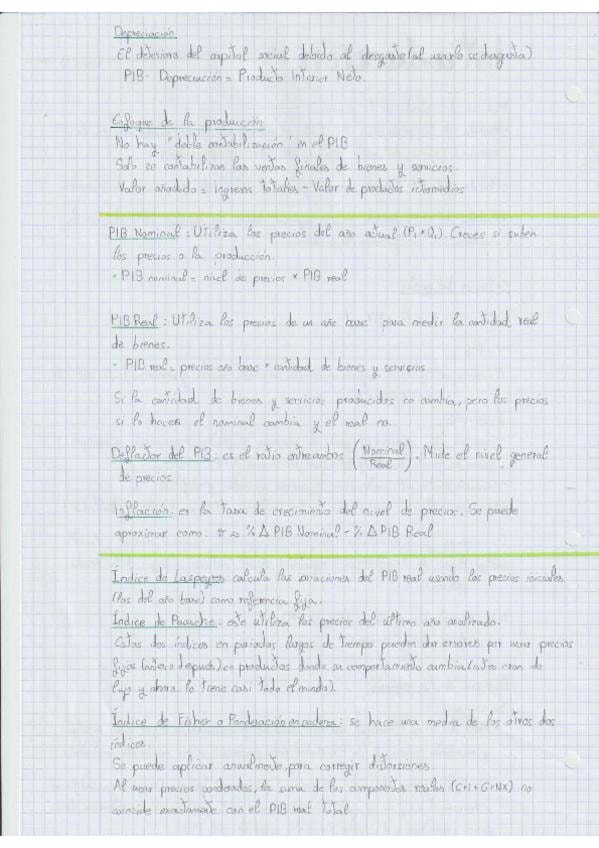 Depreciación
El deterioro del capital social debido al desgaste (al usarlo se desgasta).
PIB - Depreciación = Producto Interior Neto.
Enfoque de la producción
No hay "doble contabilización" en el PIB
Solo se contabilizan las ventas finales de bienes y servicios.
Valor añadido = Ingresos totales - Valor de productos intermedios
PIB Nominal: Utiliza los precios del año actual (P₁ * Q₁). Creces si suben
los precios o la producción.
- PIB nominal = nivel de precios * PIB real
PIB Real: Utiliza los precios de un año base para medir la cantidad real
de bienes.
- PIB real = precios año base * cantidad de bienes y servicios.
Si la cantidad de bienes y servicios producidos no cambia, pero los precios
si lo hacen el nominal cambia y el real no.
Deflactor del PIB: es el ratio entre ambos (Nominal/Real). Mide el nivel general
de precios
Inflación: es la tasa de crecimiento del nivel de precios. Se puede
aproximar como: π ≈ % Δ PIB Nominal - % Δ PIB Real
Índice de Laspeyres: calcula las variaciones del PIB real usando los precios iniciales
(los del año base) como referencia fija.
Índice de Paasche: este utiliza los precios del último año analizado.
Estas dos índices en periodos largos de tiempo pueden dar errores por usar precios
fijos (antes o después) en productos donde su comportamiento cambia (antes eran de
lujo y ahora lo tiene casi todo el mundo).
Índice de Fisher o Ponderación en cadena: se hace una media de los otros dos
índices.
Se puede aplicar anualmente, para corregir distorsiones.
Al usar precios ponderados, la suma de los componentes reales (C+I+G+NX) no
coincide exactamente con el PIB real total